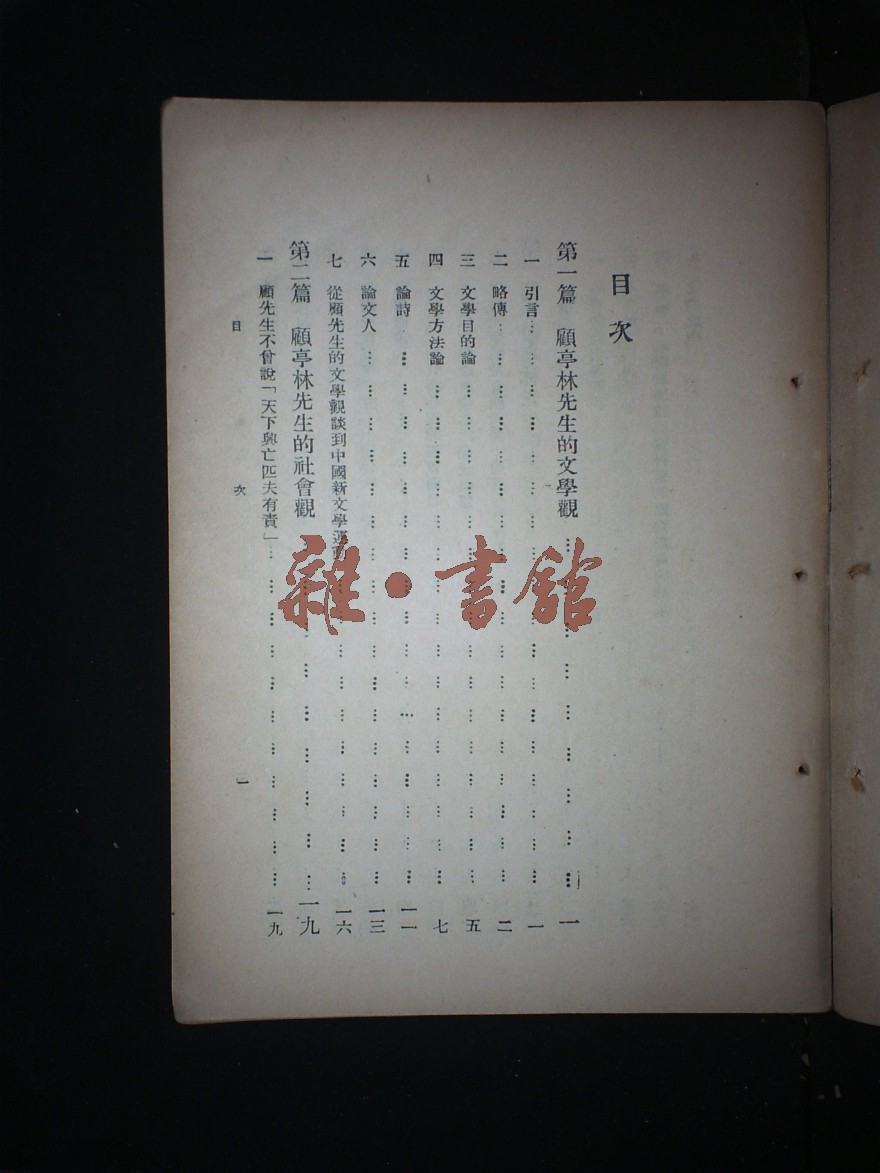 目次
第一篇 顧亭林先生的文學觀………一
一 引言………一
二 略傳………二
三 文學目的論………五
四 文學方法論………七
五 論詩………一一
六 論文人………一三
七 從顧先生的文學觀談到中國新文學運動………一六
第二篇 顧亭林先生的社會觀………一九
一 顧先生不曾說「天下興亡匹夫有責」………一九
目次 一
雜·書館